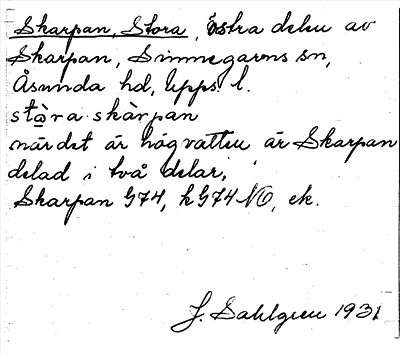 Skarpan, Stora, östra delen av
Skarpan, Simmegarns sn,
Åsunda hd, Upps. l.
stòra skàrpan
när det är högvatten är Skarpan
delad i två delar,
Skarpan G74, k G74 NO, ek.
J. Sahlgren 1931